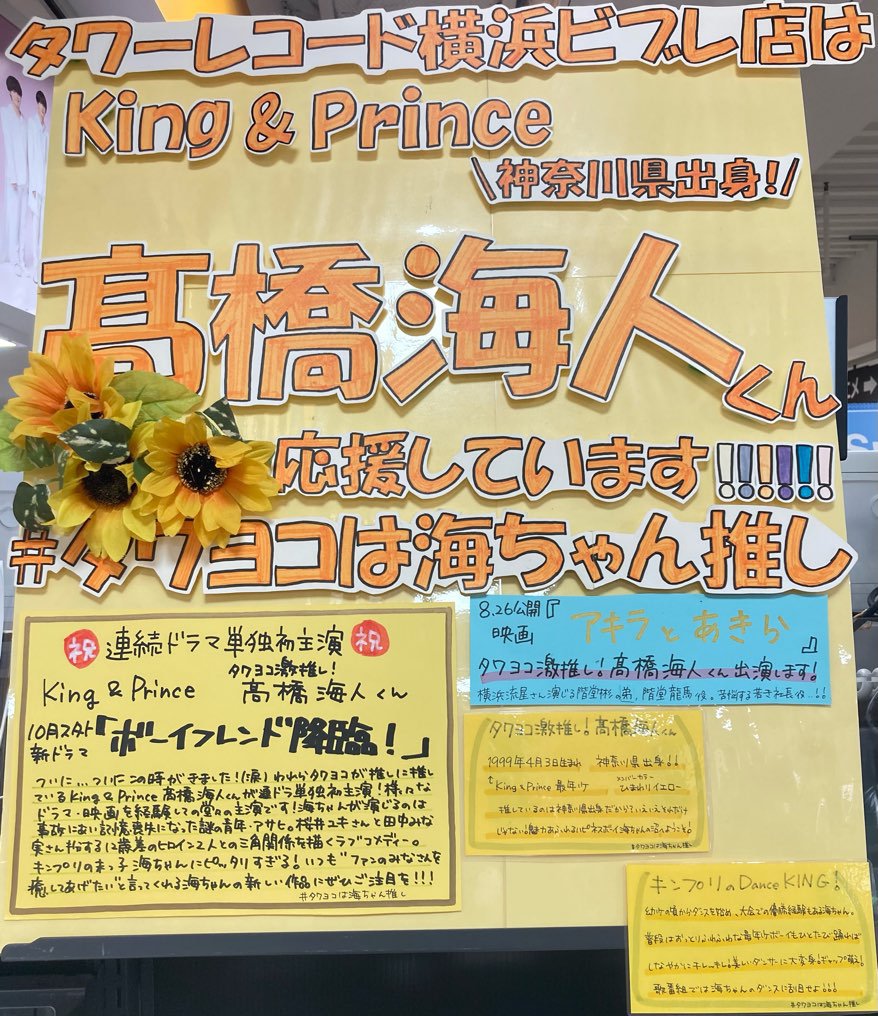 タワーレコード横浜ビブレ店は
King & Prince
\神奈川県出身!/
髙橋海人くん
応援しています!!!!!!
#タワヨコは海ちゃん推し
祝 連続ドラマ単独初主演 祝
タワヨコ激推し!
King & Prince 髙橋海人くん
10月スタート
新ドラマ「ボーイフレンド降臨!」
ついに…ついにこの時がきました!(涙)われらタワヨコが推しに推し
ているKing & Prince 髙橋海人くんが連ドラ単独初主演!様々な
ドラマ・映画を経験しての堂々の主演です!海ちゃんが演じるのは
事故にあい記憶喪失になった謎の青年・アサヒ。桜井ユキさんと田中みな
実さん扮する12歳差のヒロイン2人との三角関係を描くラブコメディー。
キンプリの末っ子海ちゃんにピッタリすぎる!いつも"ファンのみなさんを
癒してあげたい"と言ってくれる海ちゃんの新しい作品にぜひご注目を!!!
#タワヨコは海ちゃん推し
8.26公開『
映画 アキラとあきら
』
タワヨコ激推し!髙橋海人くん出演します!
横浜流星さん演じる階堂彬の弟、階堂龍馬役。苦悩する若き社長役…!!
タワヨコ激推し!髙橋海人くん
1999年4月3日生まれ 神奈川県出身!!
↑King & Prince 最年少 メンバーカラー ひまわりイエロー
推しているのは神奈川県出身だから?いえいえそれだけ
じゃない魅力あふれるハピネスボーイ海ちゃんの沼へようこそ。
#タワヨコは海ちゃん推し
キンプリのDance KING!
幼少の頃からダンスを始め、大会での優勝経験もある海ちゃん。
普段はおっとりふわふわな最年少ボーイもひとたび踊れば
しなやかにキレッキレ!美しいダンサーに大変身!ギャップ萌え!
歌番組では海ちゃんのダンスに刮目せよ!!!
#タワヨコは海ちゃん推し